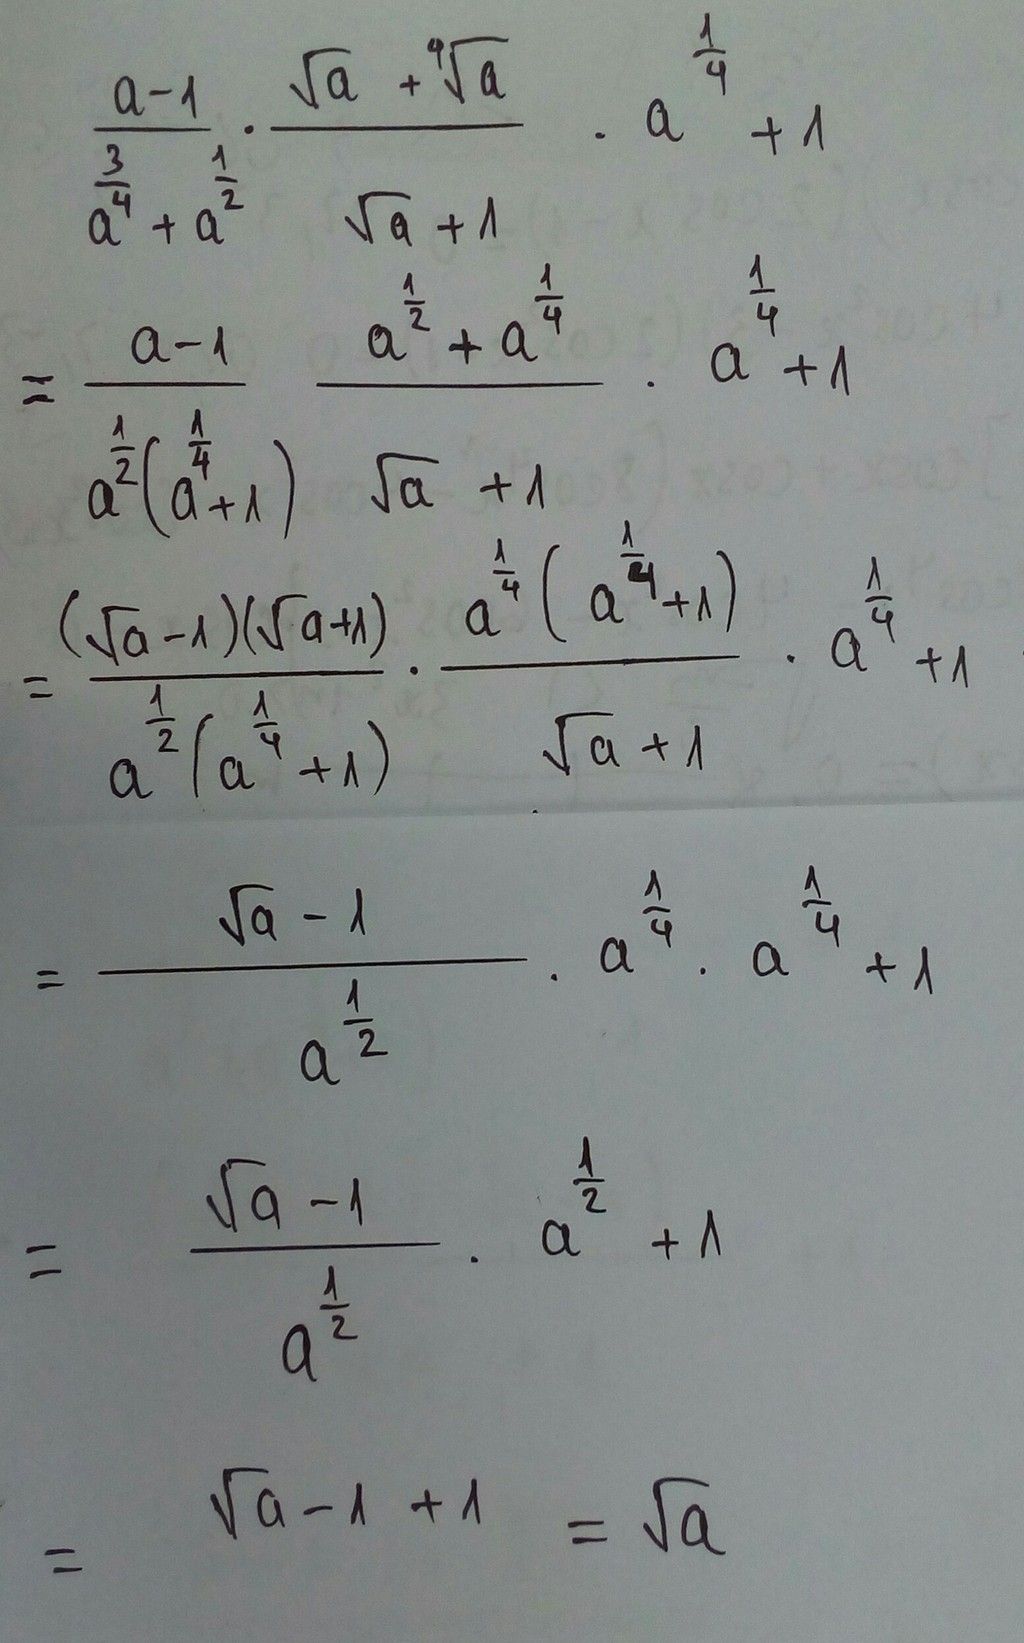 (a-1)/(a^(3/4) + a^(1/2)) · (√a + ∜a)/(√a + 1) · a^(1/4) + 1
= (a-1)/(a^(1/2)(a^(1/4)+1)) (a^(1/2) + a^(1/4))/(√a + 1) · a^(1/4) + 1
= ((√a-1)(√a+1))/(a^(1/2)(a^(1/4)+1)) · (a^(1/4)(a^(1/4)+1))/(√a+1) · a^(1/4) + 1
= (√a - 1)/(a^(1/2)) · a^(1/4) · a^(1/4) + 1
= (√a - 1)/(a^(1/2)) · a^(1/2) + 1
= √a - 1 + 1 = √a